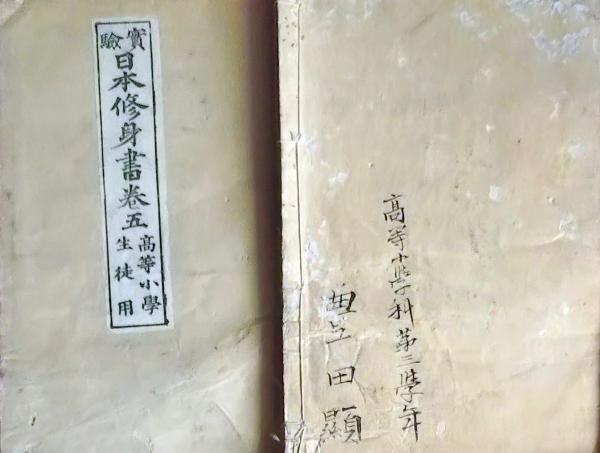 實驗
日本修身書卷五
高等小學
生徒用
高等小學科第三學年
豊田顯